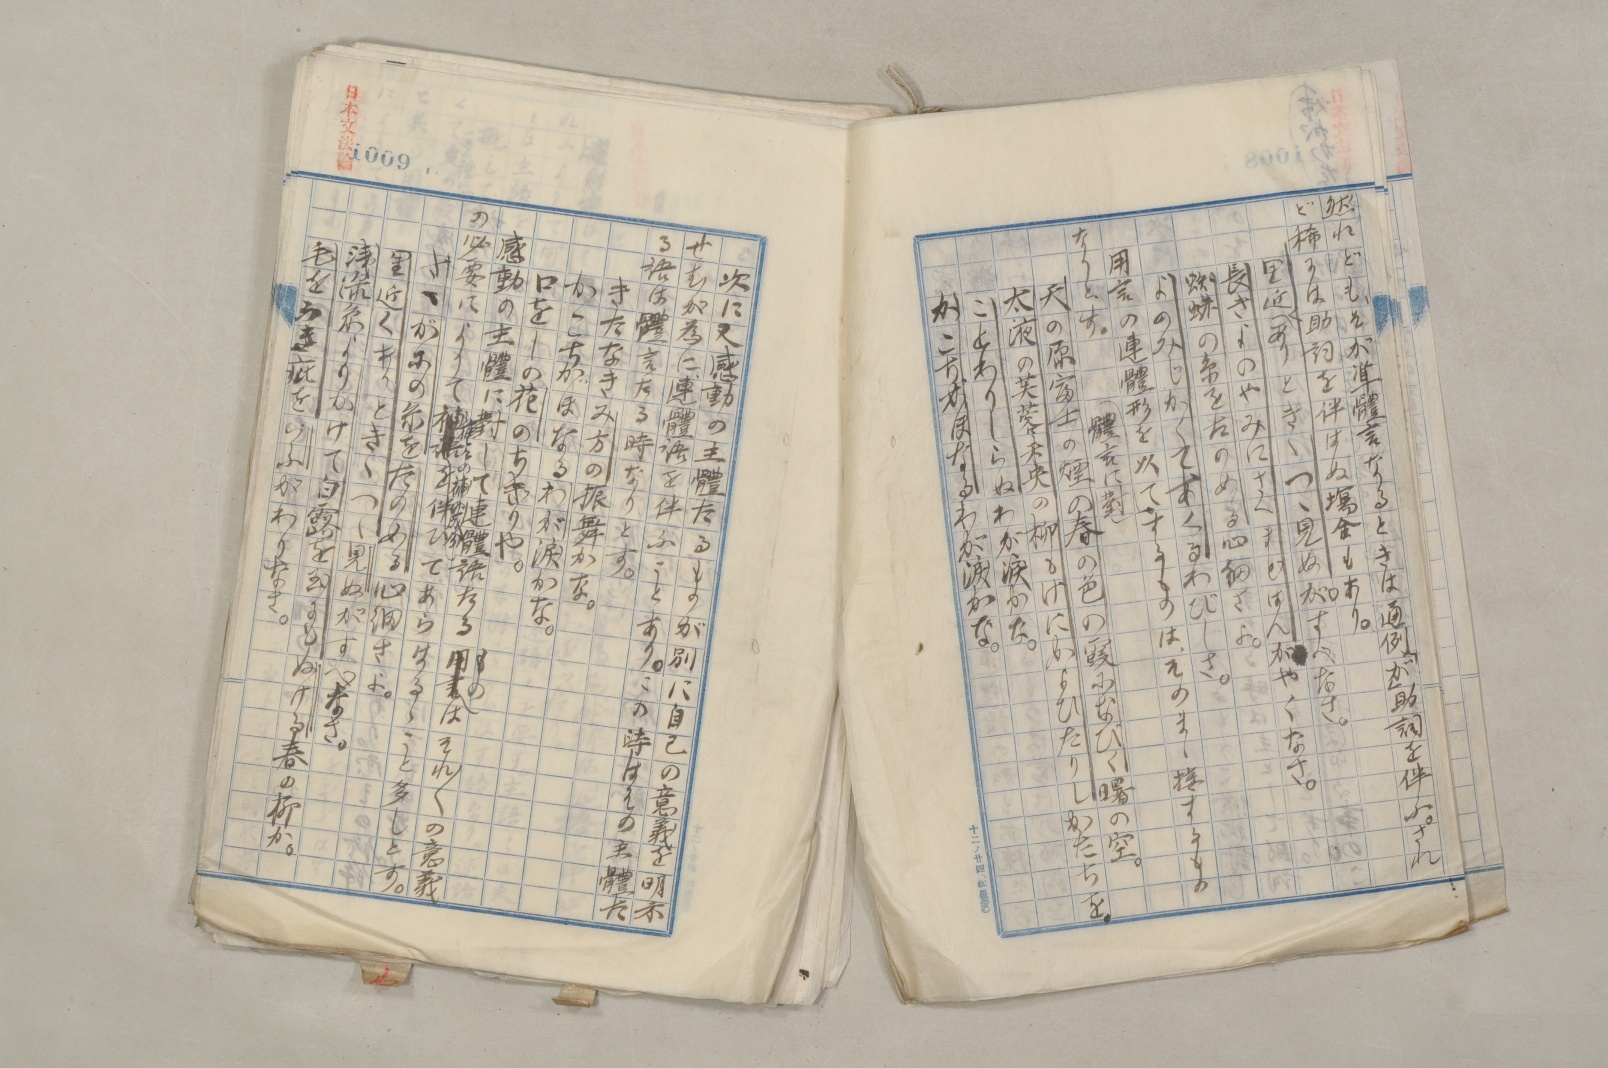 然れども、そが準體言なるときは通例「が」助詞を伴ふ。され
ど稀には助詞を伴はぬ場合もあり。
里近くありときゝつゝ見ぬがすべなさ。
長きよのやみにさくすむはんがやくなさ。
蜘蛛の糸をたのめる心細さよ。
よのみじかくてあくるわびしさ。
體言に對
用言の連體形を以てするものは、そのまゝ接するもの
なりとす。
天の原富士の煙の春の色の霞になびく曙の空。
太液の芙蓉未央の柳もげにかよひたりしかたちを。
ことわりしらぬわが涙かな。
かこちがほなるわが涙かな。
日本文法論
1009
次に又感動の主體たるものが別に自己の意義を明示
せむが為に連體語を伴ふことあり。この時はその主體た
る語は體言たる時なりとす。
きたなきみ方の振舞かな。
かこちがほなるわが涙かな。
口をしの花のちぎりや。
感動の主體に對して連體語たるものは
それ〳〵の意義
の必要によりて補語を伴ひてあらはるゝこと多しとす。
さゝがにの糸をたのめる心細さよ。
里近くありときゝつゝ見ぬがすべなさ。
淺緑糸よりかけて白露を玉にもぬける春の柳か。
毛をふき疵をいふがわりなさ。